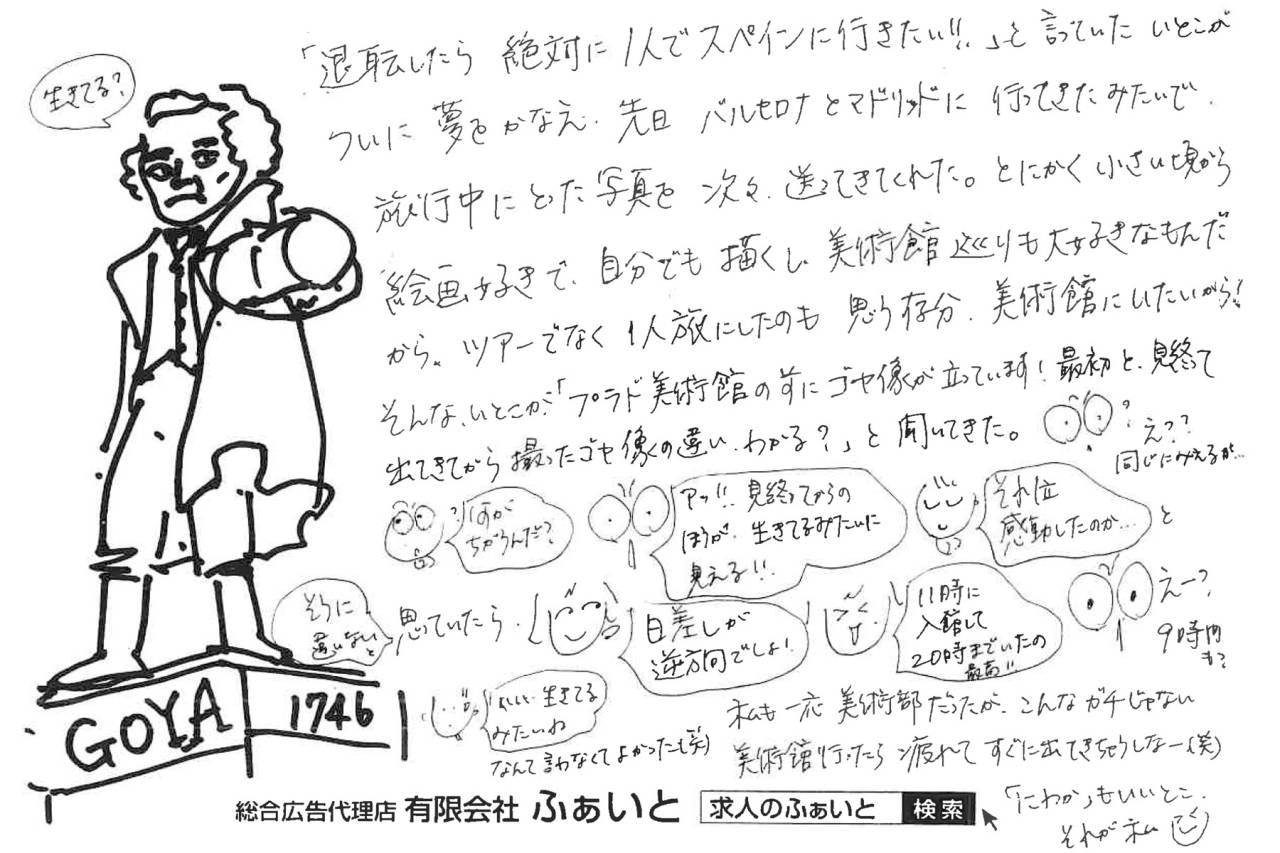 生きてる?
「退転したら 絶対に1人でスペインに行きたい!!」と言っていた いとこが
ついに 夢をかなえ、先日 バルセロナとマドリッドに 行ってきたみたいで、
旅行中にとった写真を 次々、送ってきてくれた。とにかく小さい頃から
絵画好きで、自分でも描くし、美術館巡りも大好きなもんだ
から、ツアーでなく1人旅にしたのも 思う存分、美術館にいたいから!
そんな、いとこが、「プラド美術館の前にゴヤ像が立っています! 最初と、見終て
出てきてから撮ったゴヤ像の違い、わかる?」と聞いてきた。
え??
同じにみえるが…
なにが
ちがうんだ?
アッ!!、見終ってからの
ほうが、生きてるみたいに
見える!!
それ位
感動したのか…
と
そうに
違いないと
思ていたら、
日差しが
逆方向でしょ!
11時に
入館して
20時までいたの
最高!!
えー?
9時間
も?
生きてる
みたいね
なんて言わなくてよかったー(笑)
私も一応 美術部だったが、こんなガチじゃない
美術館行ったら 疲れて すぐに出てきちゃうしなー(笑)
「にわか」もいいとこ、
それが私
GOYA 1746
総合広告代理店 有限会社 ふぁいと 求人のふぁいと 検索